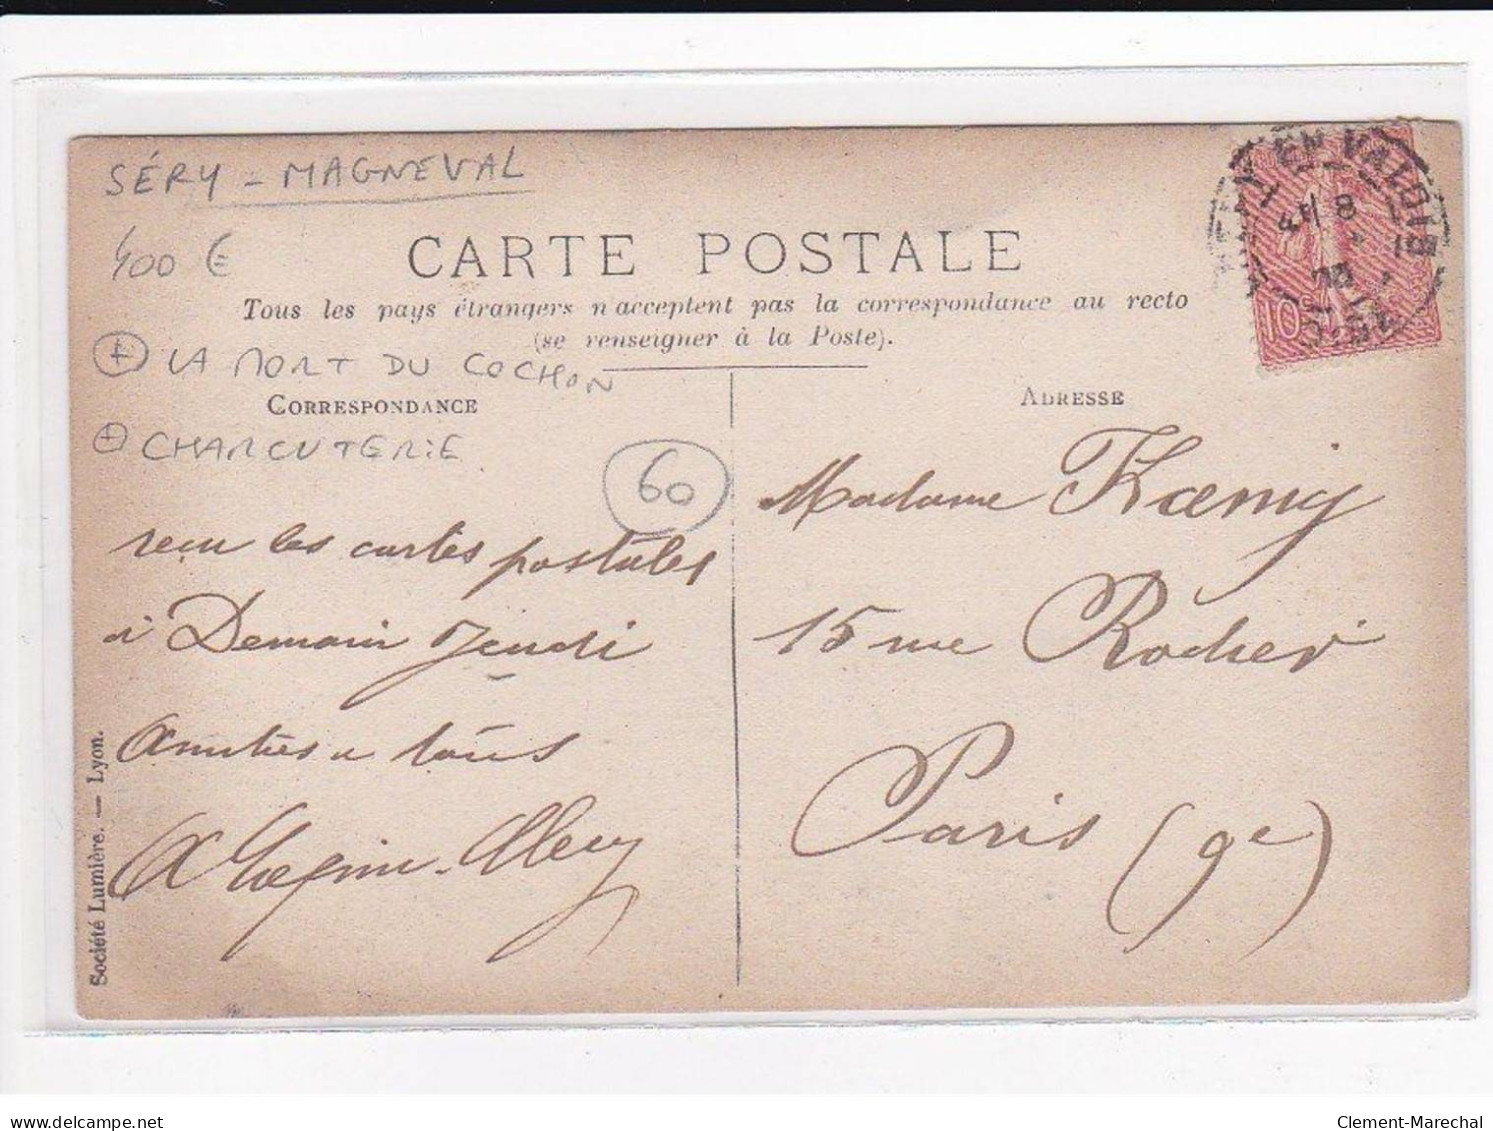 SÉRY - MAGNEVAL
400 €
CARTE POSTALE
Tous les pays étrangers n'acceptent pas la correspondance au recto
(se renseigner à la Poste).
+ LA MORT DU COCHON
CORRESPONDANCE
+ CHARCUTERIE
60
reçu les cartes postales
à Demain Jeudi
Amitiés a tous
Société Lumière. — Lyon.
ADRESSE
Madame Kœnig
15 rue Rocher
Paris (9e)
EN VALOIS
10
delcampe.net
Clement-Marechal